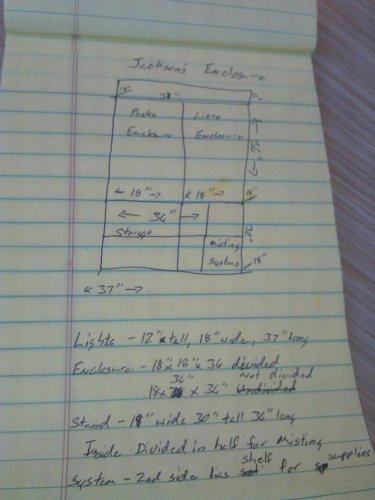 Jackson's Enclosure
38"
Enclosure Enclosure
18" 18" 18"
36"
Storage
Misting
System 18"
37"
Lights - 12" tall, 18" wide, 37" long
Enclosure - 18" x 18" x 36 divided
36" Not divided
18 x 36 x 36" Undivided
Stand - 18" wide 30" tall 36" long
Inside Divided in half for Misting
system - 2nd side has shelf for supplies